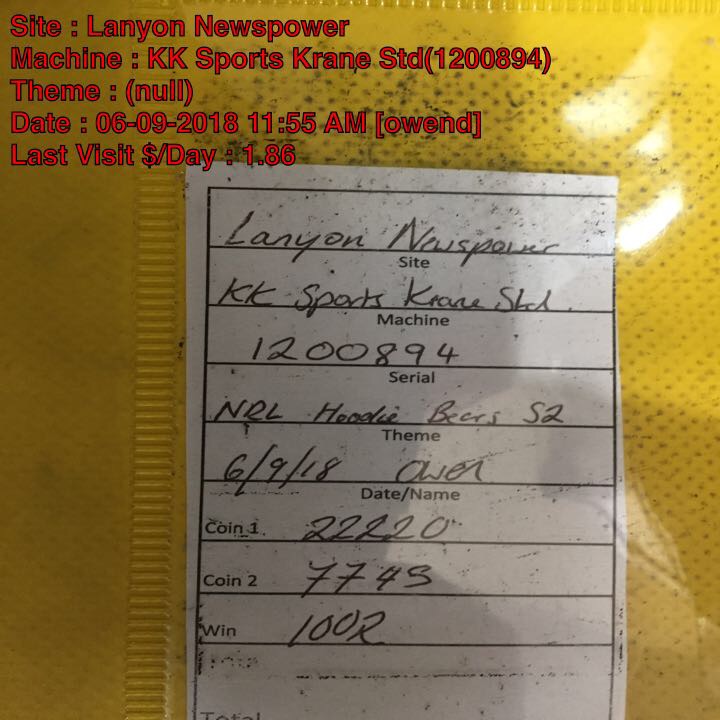 Site : Lanyon Newspower
Machine : KK Sports Krane Std(1200894)
Theme : (null)
Date : 06-09-2018 11:55 AM [owend]
Last Visit $/Day : 1.86
Lanyon Newspower
Site
KK Sports Krane Std.
Machine
1200894
Serial
NRL Hoodie Bears S2
Theme
6/9/18 Owen
Date/Name
Coin 1 22220
Coin 2 7745
Win 1002
Total